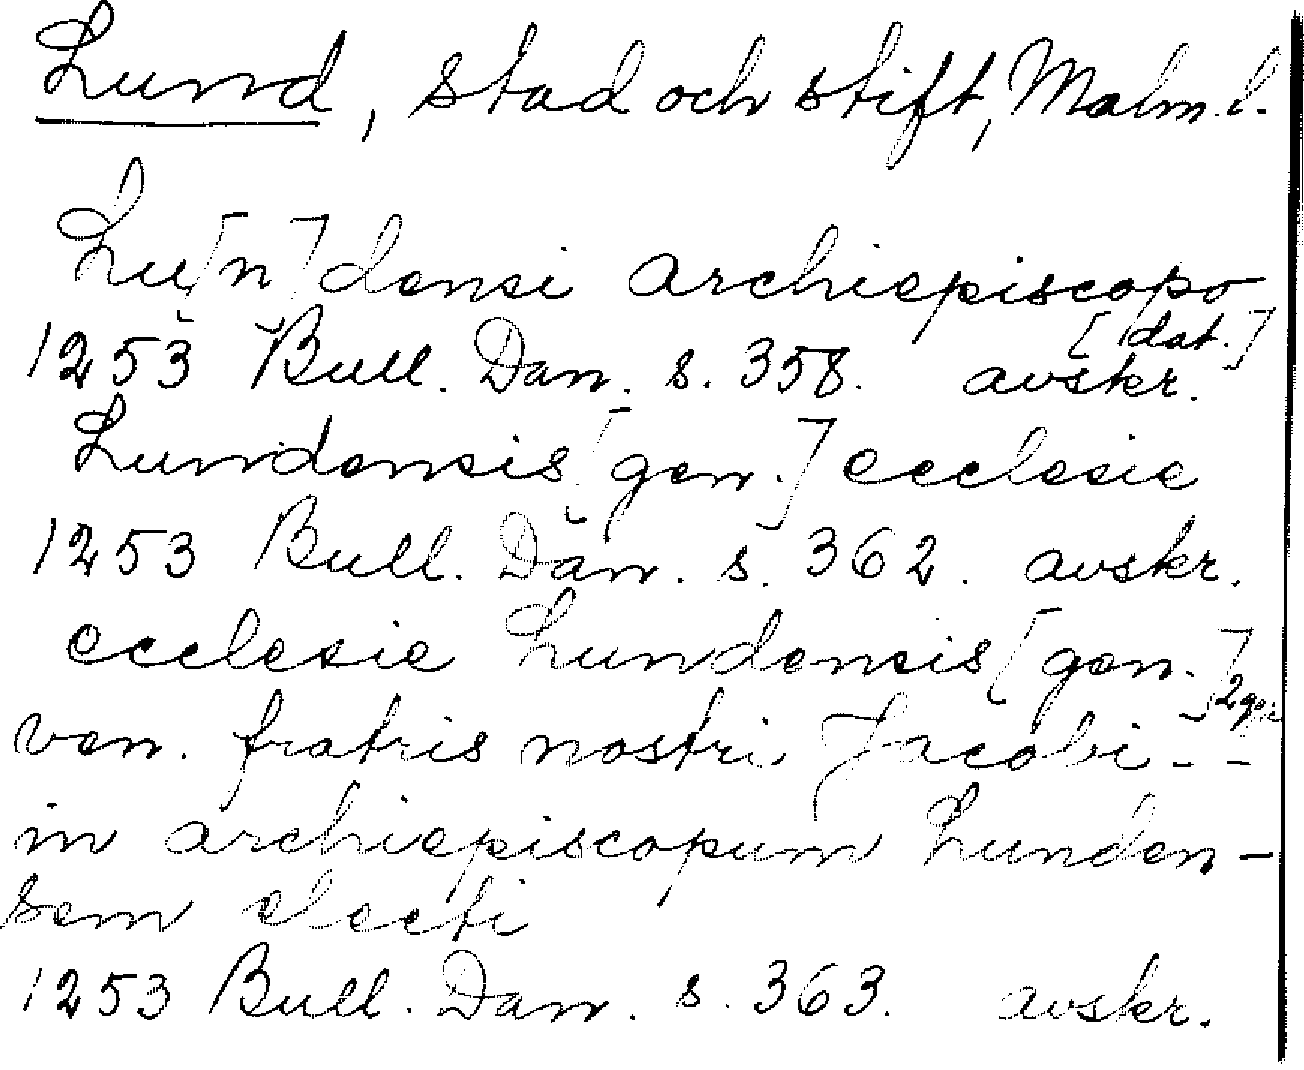 Lund, stad och stift, Malm. l.
Lu[n]densi archiepiscopo
[dat.]
1253 Bull. Dan. s. 358. avskr.
Lundensis [gen.] ecclesie
1253 Bull. Dan. s. 362. avskr.
ecclesie Lundensis [gen.] 2 ggr
ven. fratris nostri Jacobi - -
in archiepiscopum Lunden-
sem electi
1253 Bull. Dan. s. 363. avskr.